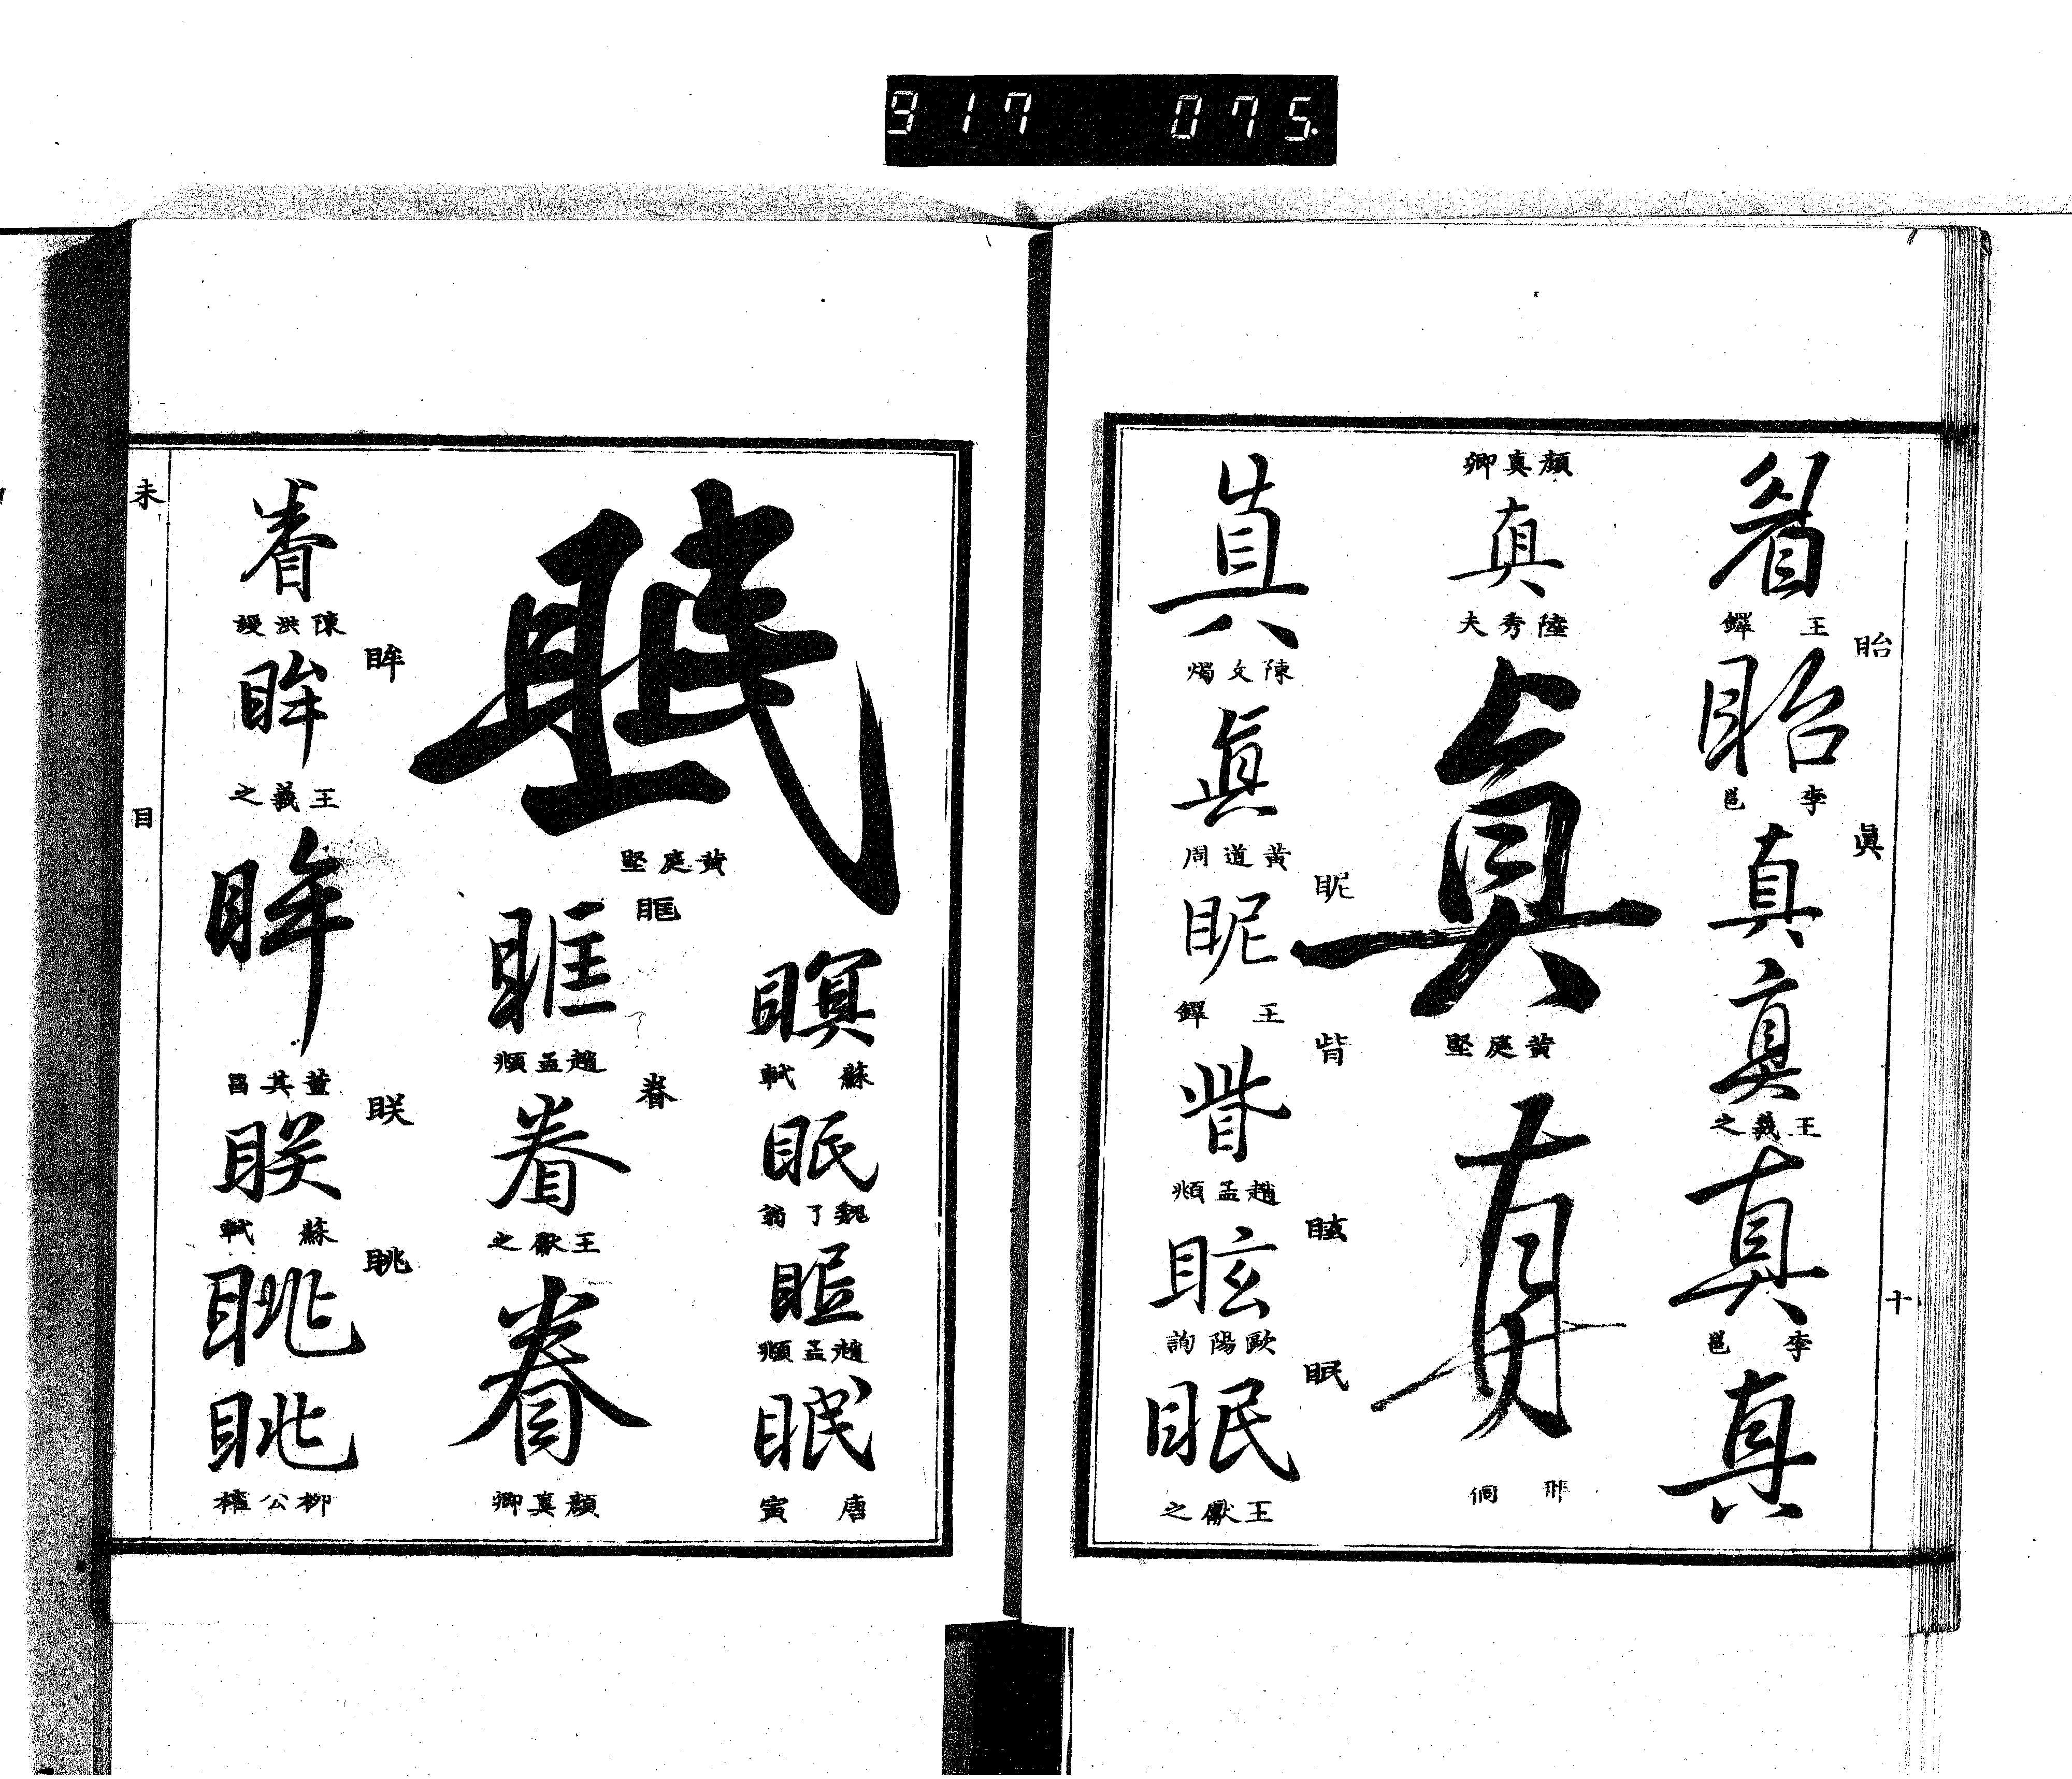 917 075
看
王鐸
眙
眙
李邕
眞
真
真
王羲之
真
李邕
真
顏真卿
真
陸秀夫
真
黃庭堅
真
真
陳文燭
真
黃道周
昵
昵
王鐸
眥
眥
趙孟頫
眩
眩
歐陽詢
眠
眠
王獻之
十
眠
黃庭堅
瞑
蘇軾
眠
魏了翁
眶
趙孟頫
眠
唐寅
眶
眶
趙孟頫
眷
眷
王獻之
眷
顏真卿
眷
陳洪綬
眸
眸
王羲之
眸
董其昌
眹
眹
蘇軾
眺
眺
眺
柳公權
未
目